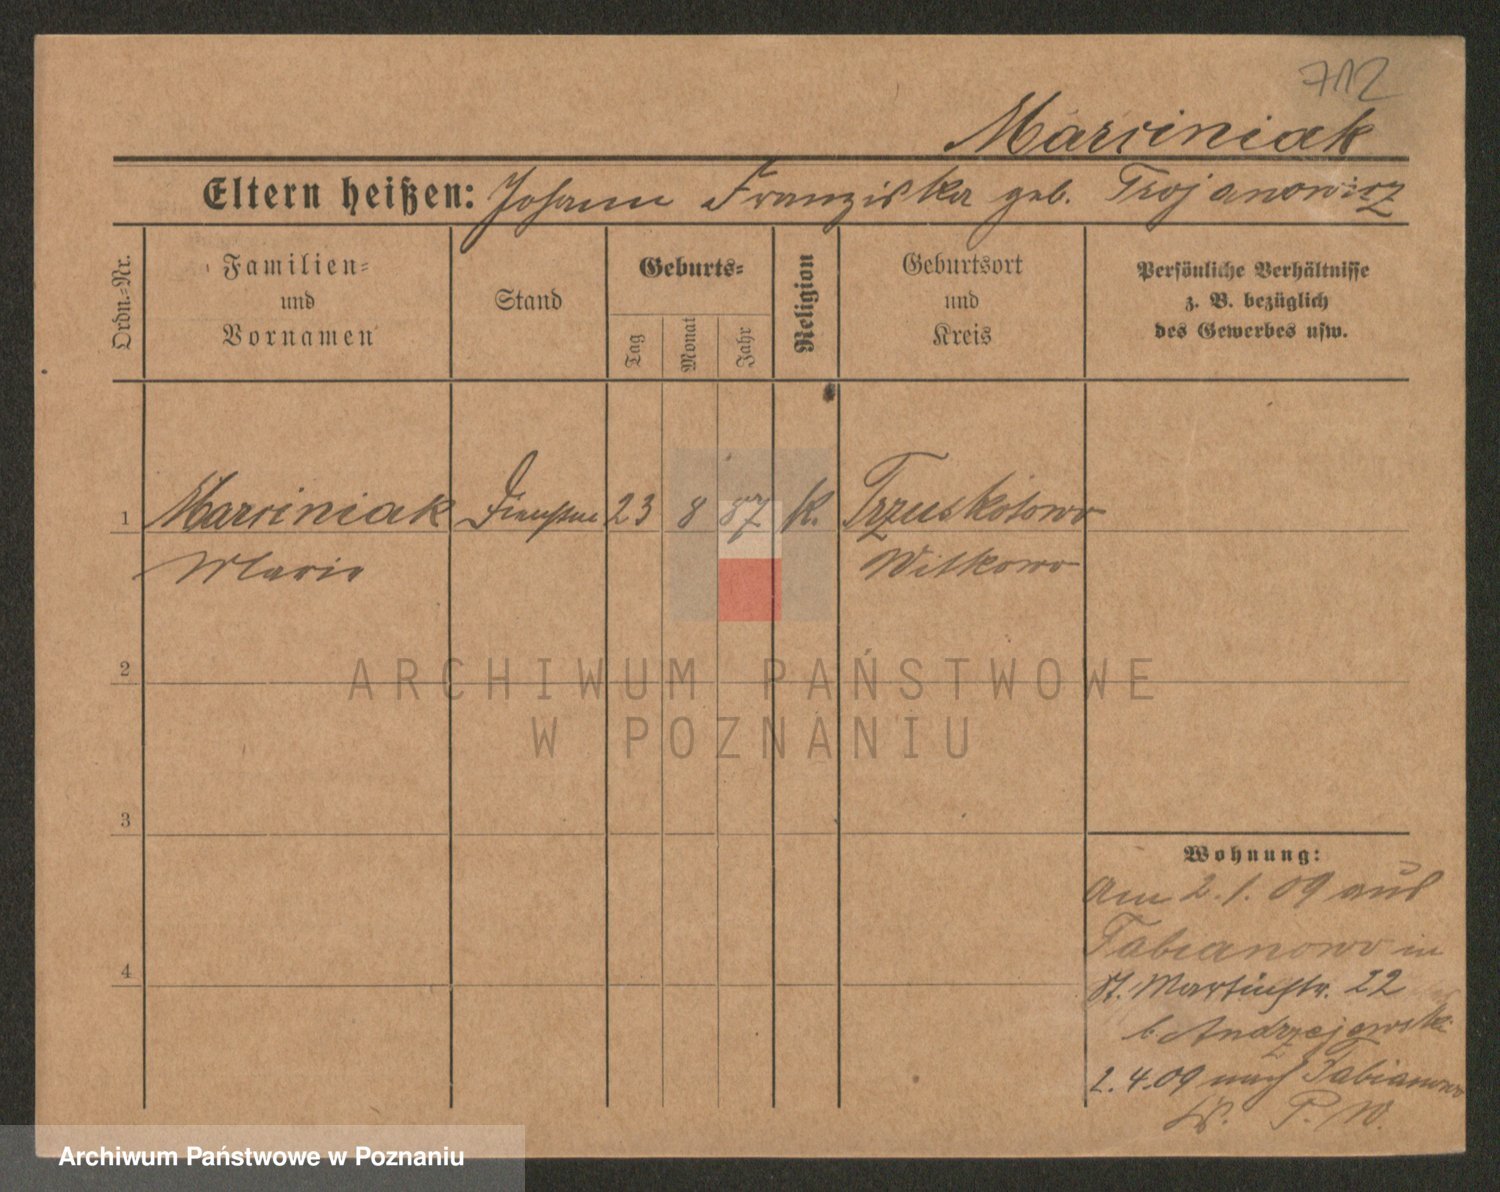 712
Marciniak
Eltern heißen: Johann Franziska geb. Trojanowicz
Ordn.-Nr.
Familien-
und
Vornamen
Stand
Geburts-
Tag
Monat
Jahr
Religion
Geburtsort
und
Kreis
Persönliche Verhältnisse
z. B. bezüglich
des Gewerbes usw.
1 Marciniak 23 8 87 K. Trzuskotowo
Maria Witkowo
2
3
4
Wohnung:
Am 2.1.09 aus
Fabianowo in
St. Martinstr. 22
b. Andrzejewski
2.4.09 nach Fabianowo
P. W.
ARCHIWUM PAŃSTWOWE
W POZNANIU
Archiwum Państwowe w Poznaniu